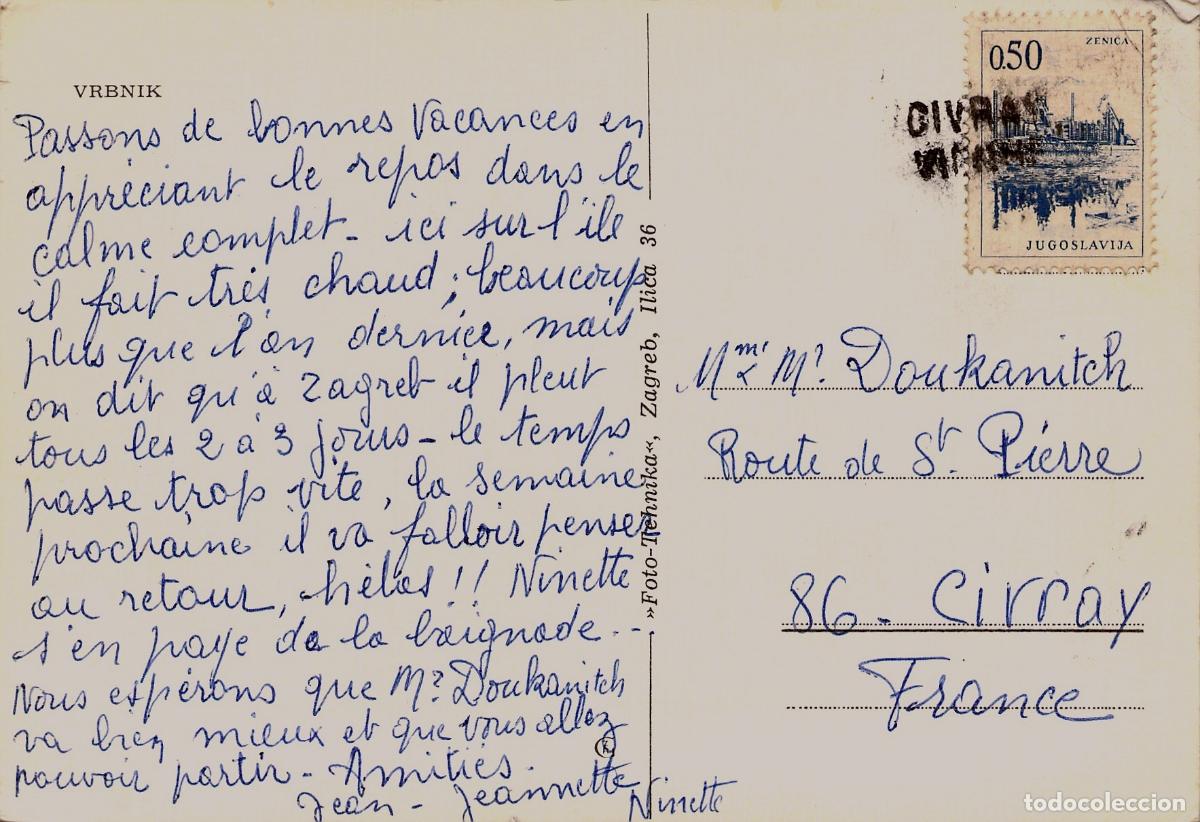 VRBNIK
Passons de bonnes Vacances en
appréciant le repos dans le
calme complet - ici sur l'île
il fait très chaud ; beaucoup
plus que l'an dernier, mais
on dit qu'à Zagreb il pleut
tous les 2 à 3 jours - le temps
passe trop vite, la semaine
prochaine il va falloir penser
au retour, hélas !! Ninette
s'en paye de la baignade...
Nous espérons que Mr Doukanitch
va bien mieux et que vous allez
pouvoir partir - Amitiés.
Jean - Jeannette Ninette
»Foto-Tehnika«, Zagreb, Ilica 36
0.50
ZENICA
JUGOSLAVIJA
CIVRAY
Mme & Mr Doukanitch
Route de St. Pierre
86 - Civray
France
todocoleccion